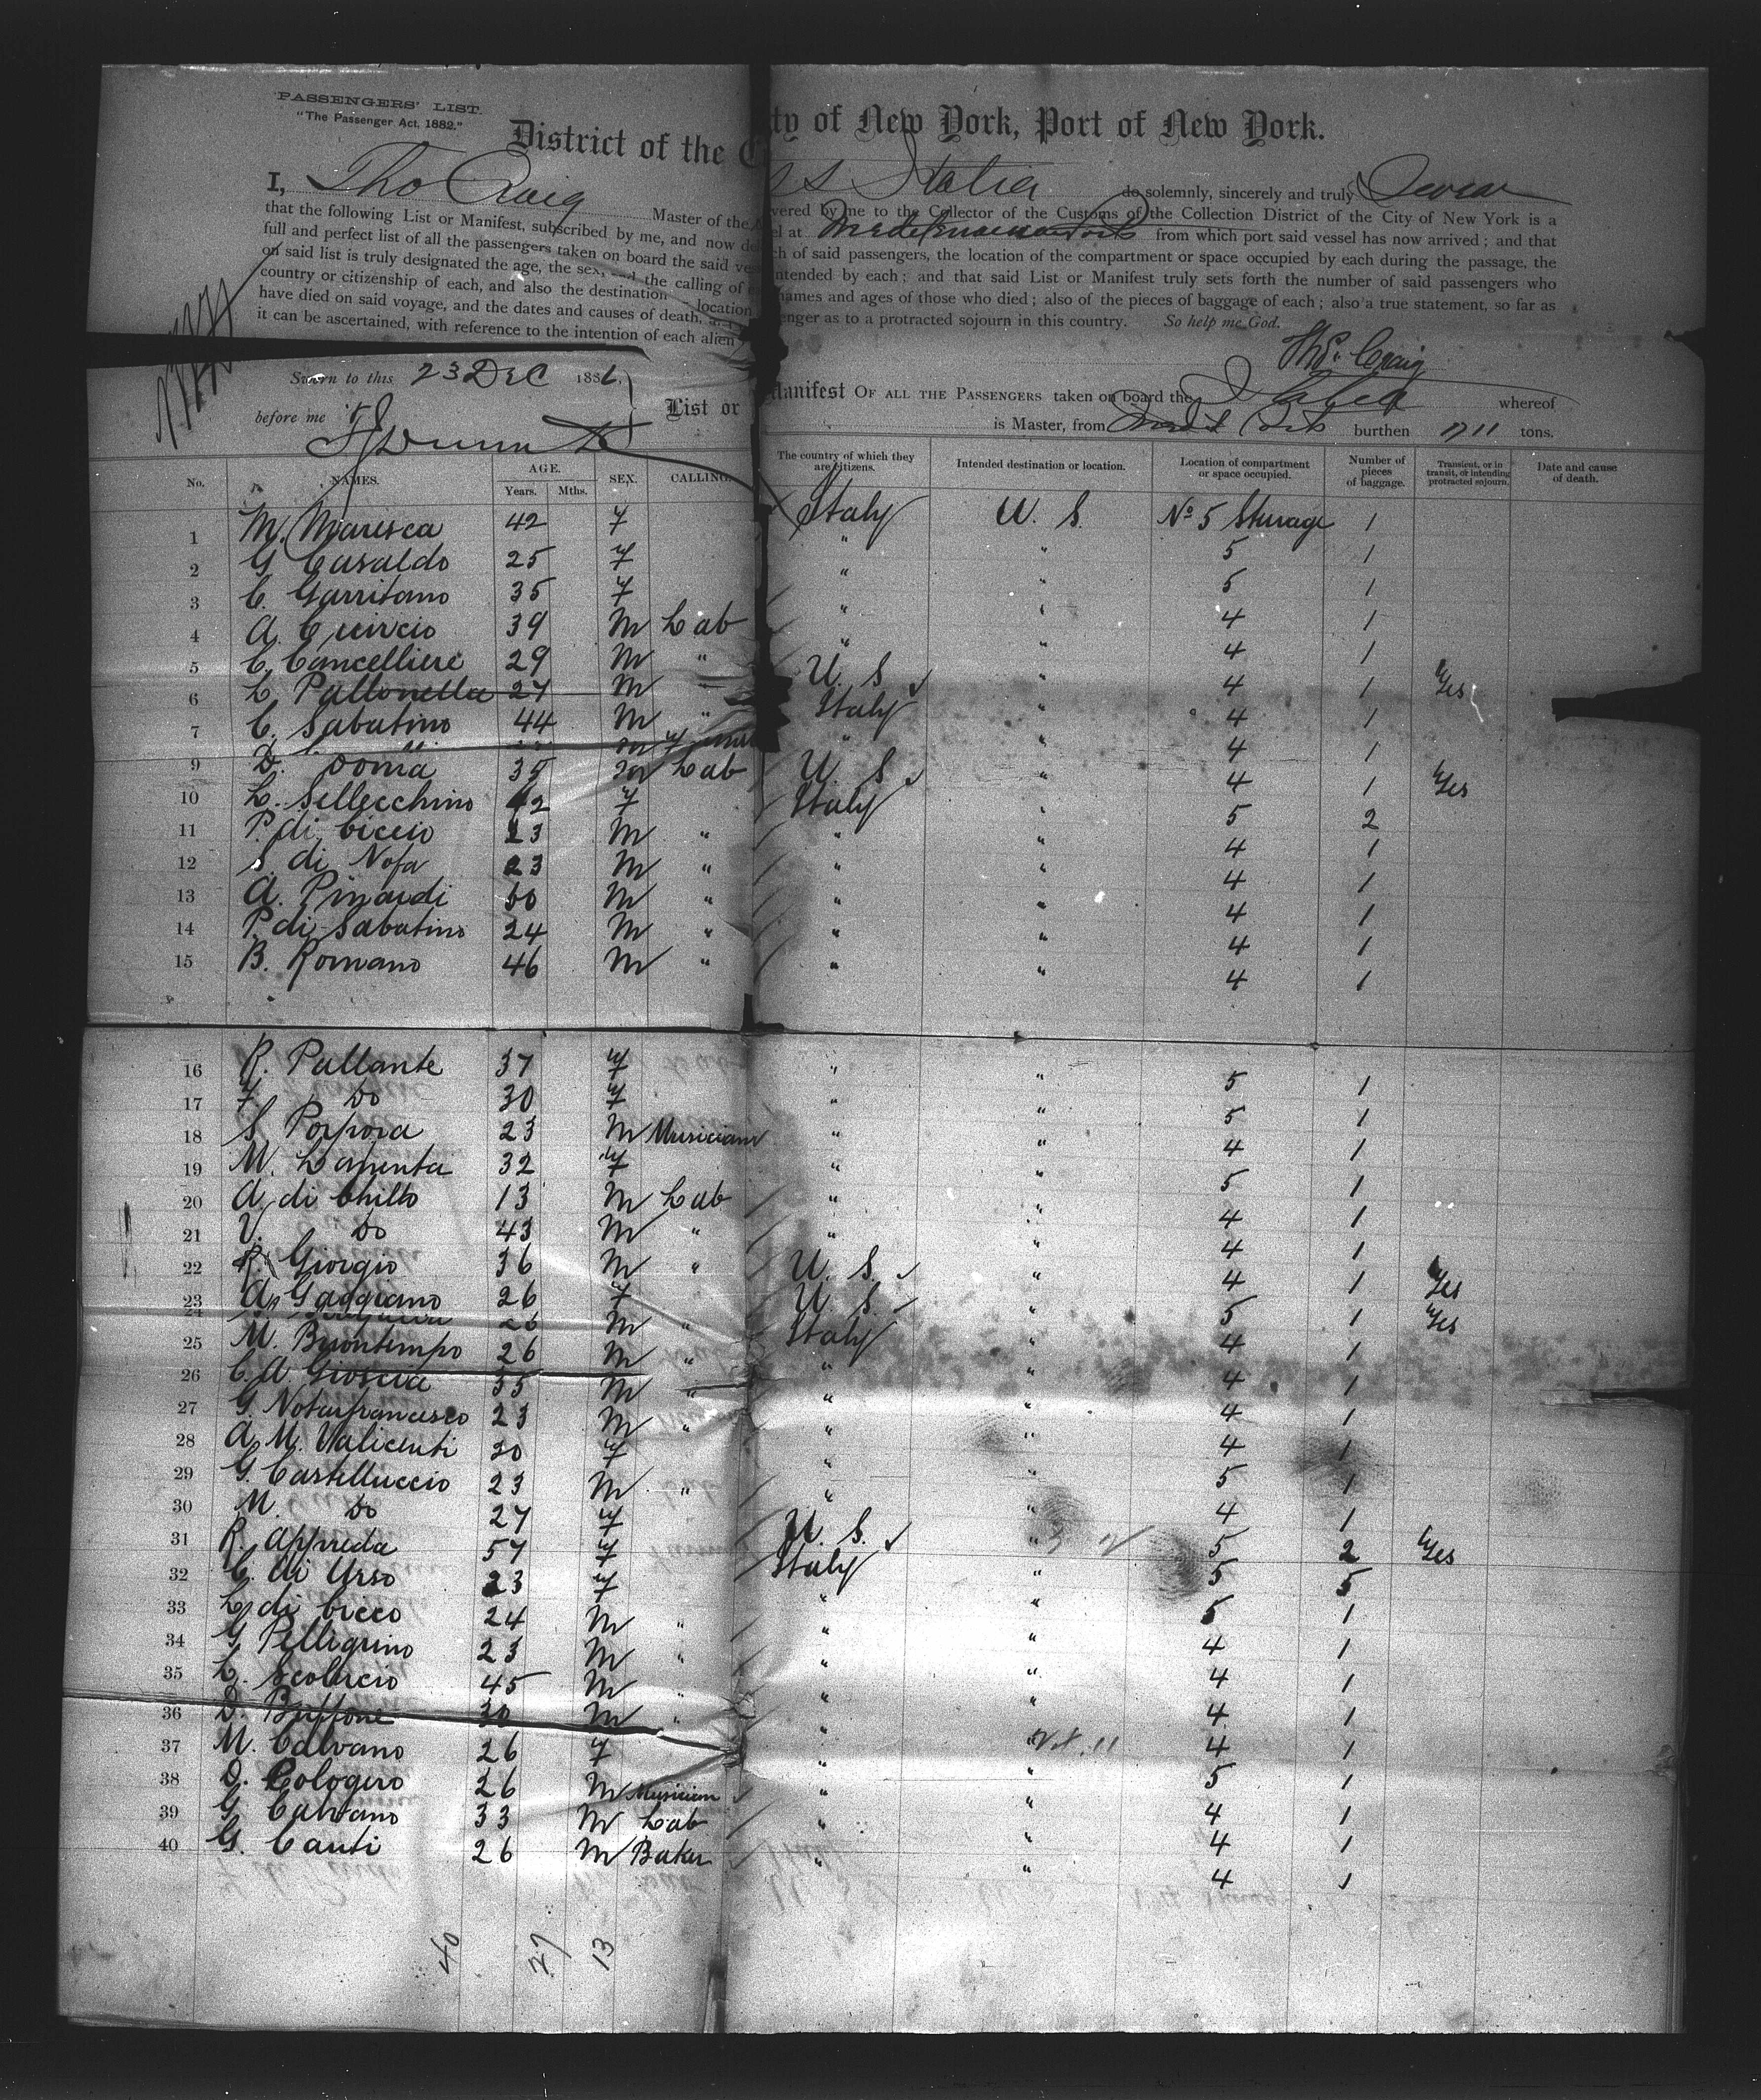 PASSENGERS' LIST.
"The Passenger Act, 1882."
District of the City of New York, Port of New York.
I, Tho Craig Master of the SS Italia do solemnly, sincerely and truly Swear
that the following List or Manifest, subscribed by me, and now delivered by me to the Collector of the Customs of the Collection District of the City of New York is a
full and perfect list of all the passengers taken on board the said vessel at Mediterranean Ports from which port said vessel has now arrived; and that
on said list is truly designated the age, the sex, and the calling of each of said passengers, the location of the compartment or space occupied by each during the passage, the
country or citizenship of each, and also the destination location intended by each; and that said List or Manifest truly sets forth the number of said passengers who
have died on said voyage, and the dates and causes of death, and names and ages of those who died; also of the pieces of baggage of each; also a true statement, so far as
it can be ascertained, with reference to the intention of each alien passenger as to a protracted sojourn in this country. So help me God.
Tho. Craig
Sworn to this 23 Dec 1886.
before me
List or Manifest OF ALL THE PASSENGERS taken on board the Italia whereof
is Master, from Med Ports burthen 1711 tons.
No. NAMES. AGE. Years. Mths. SEX. CALLING. The country of which they are citizens. Intended destination or location. Location of compartment or space occupied. Number of pieces of baggage. Transient, or in transit, or intending protracted sojourn. Date and cause of death.
1 M. Maresca 42 F Italy U. S. No 5 Sturage 1
2 G Casaldo 25 F " " 5 1
3 C. Garritano 35 F " " 5 1
4 A. Curcio 39 M Lab " " 4 1
5 C. Cancelliere 29 M " " " 4 1
6 L. Pallonella 27 M " U. S " 4 1 Yes
7 C. Sabatino 44 M " Italy " 4 1
M " " 4 1
9 D. Doma 35 M Lab U. S " 4 1 Yes
10 L. Sellecchino 42 F Italy " 5 2
11 P. di Ciccio 23 M " " " 4 1
12 S. di Nofa 23 M " " " 4 1
13 A. Pinardi 60 M " " " 4 1
14 P. di Sabatino 24 M " " " 4 1
15 B. Romano 46 M " " " 4 1
16 R. Pallante 37 F " " 5 1
17 F. Do 30 F " " 5 1
18 S Porpora 23 M Musician " " 4 1
19 M. Lapenta 32 F " " 5 1
20 A. di Chillo 13 M Lab " " 4 1
21 V. Do 43 M " " " 4 1
22 R. Giorgio 36 M " U. S. " 4 1 Yes
23 A. Gaggiano 26 F U. S. " 5 1 Yes
24 26 M " Italy " 4 1
25 M. Buontempo 26 M " " " 4 1
26 C. A. Gioscia 35 M " " " 4 1
27 G. Notarfrancesco 23 M " " " 4 1
28 A. M. Valicenti 30 F " " 5 1
29 G. Castelluccio 23 M " " " 4 1
30 M. Do 27 F " 5
31 R. Appreda 57 F U. S. " 5 2 Yes
32 C. di Urso 23 F Italy " 5 5
33 L. di Cicco 24 M " " " 5 1
34 G Pelligrino 23 M " " " 4 1
35 L. Scolucio 45 M " " " 4 1
36 D. Buffone 30 M " " " 4 1
37 M. Calvano 26 F " " 5 1
38 D. Cologero 26 M Musician " " 4 1
39 G. Calvano 33 M Lab " " 4 1
40 G. Canti 26 M Baker " " 4 1
40 27 13